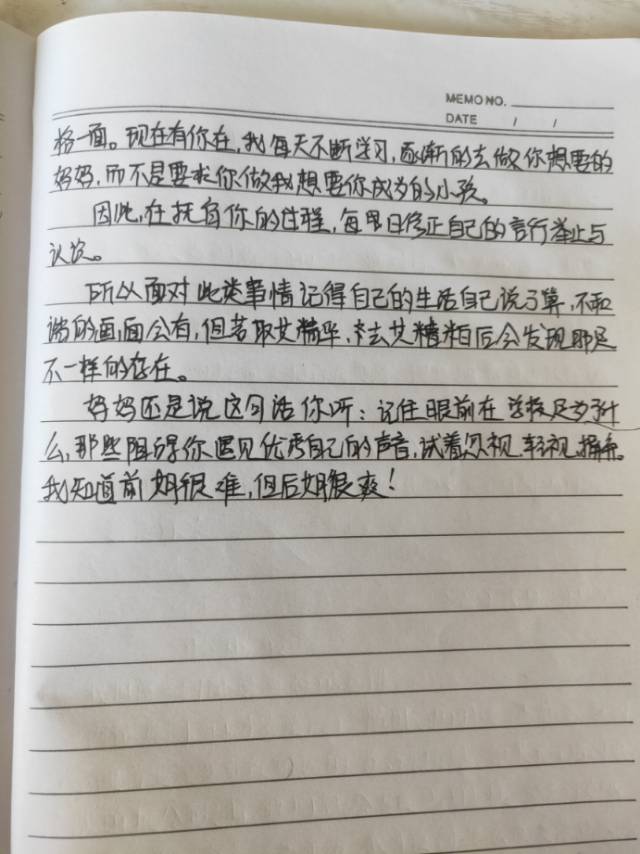 MEMO NO.
DATE / /
格一面。现在有你在,我每天不断学习,逐渐的去做你想要的
妈妈,而不是要求你做我想要你成为的小孩。
因此,在抚育你的过程,每日修正自己的言行举止与
认知。
所以面对此类事情记得自己的生活自己说了算,不和
谐的画面会有,但若取其精华,去其糟粕后会发现那是
不一样的存在。
妈妈还是说这句话你听:记住眼前在学校是为了什
么,那些阻碍你遇见优秀自己的声音,试着忽视、轻视、摒弃。
我知道前期很难,但后期很爽!